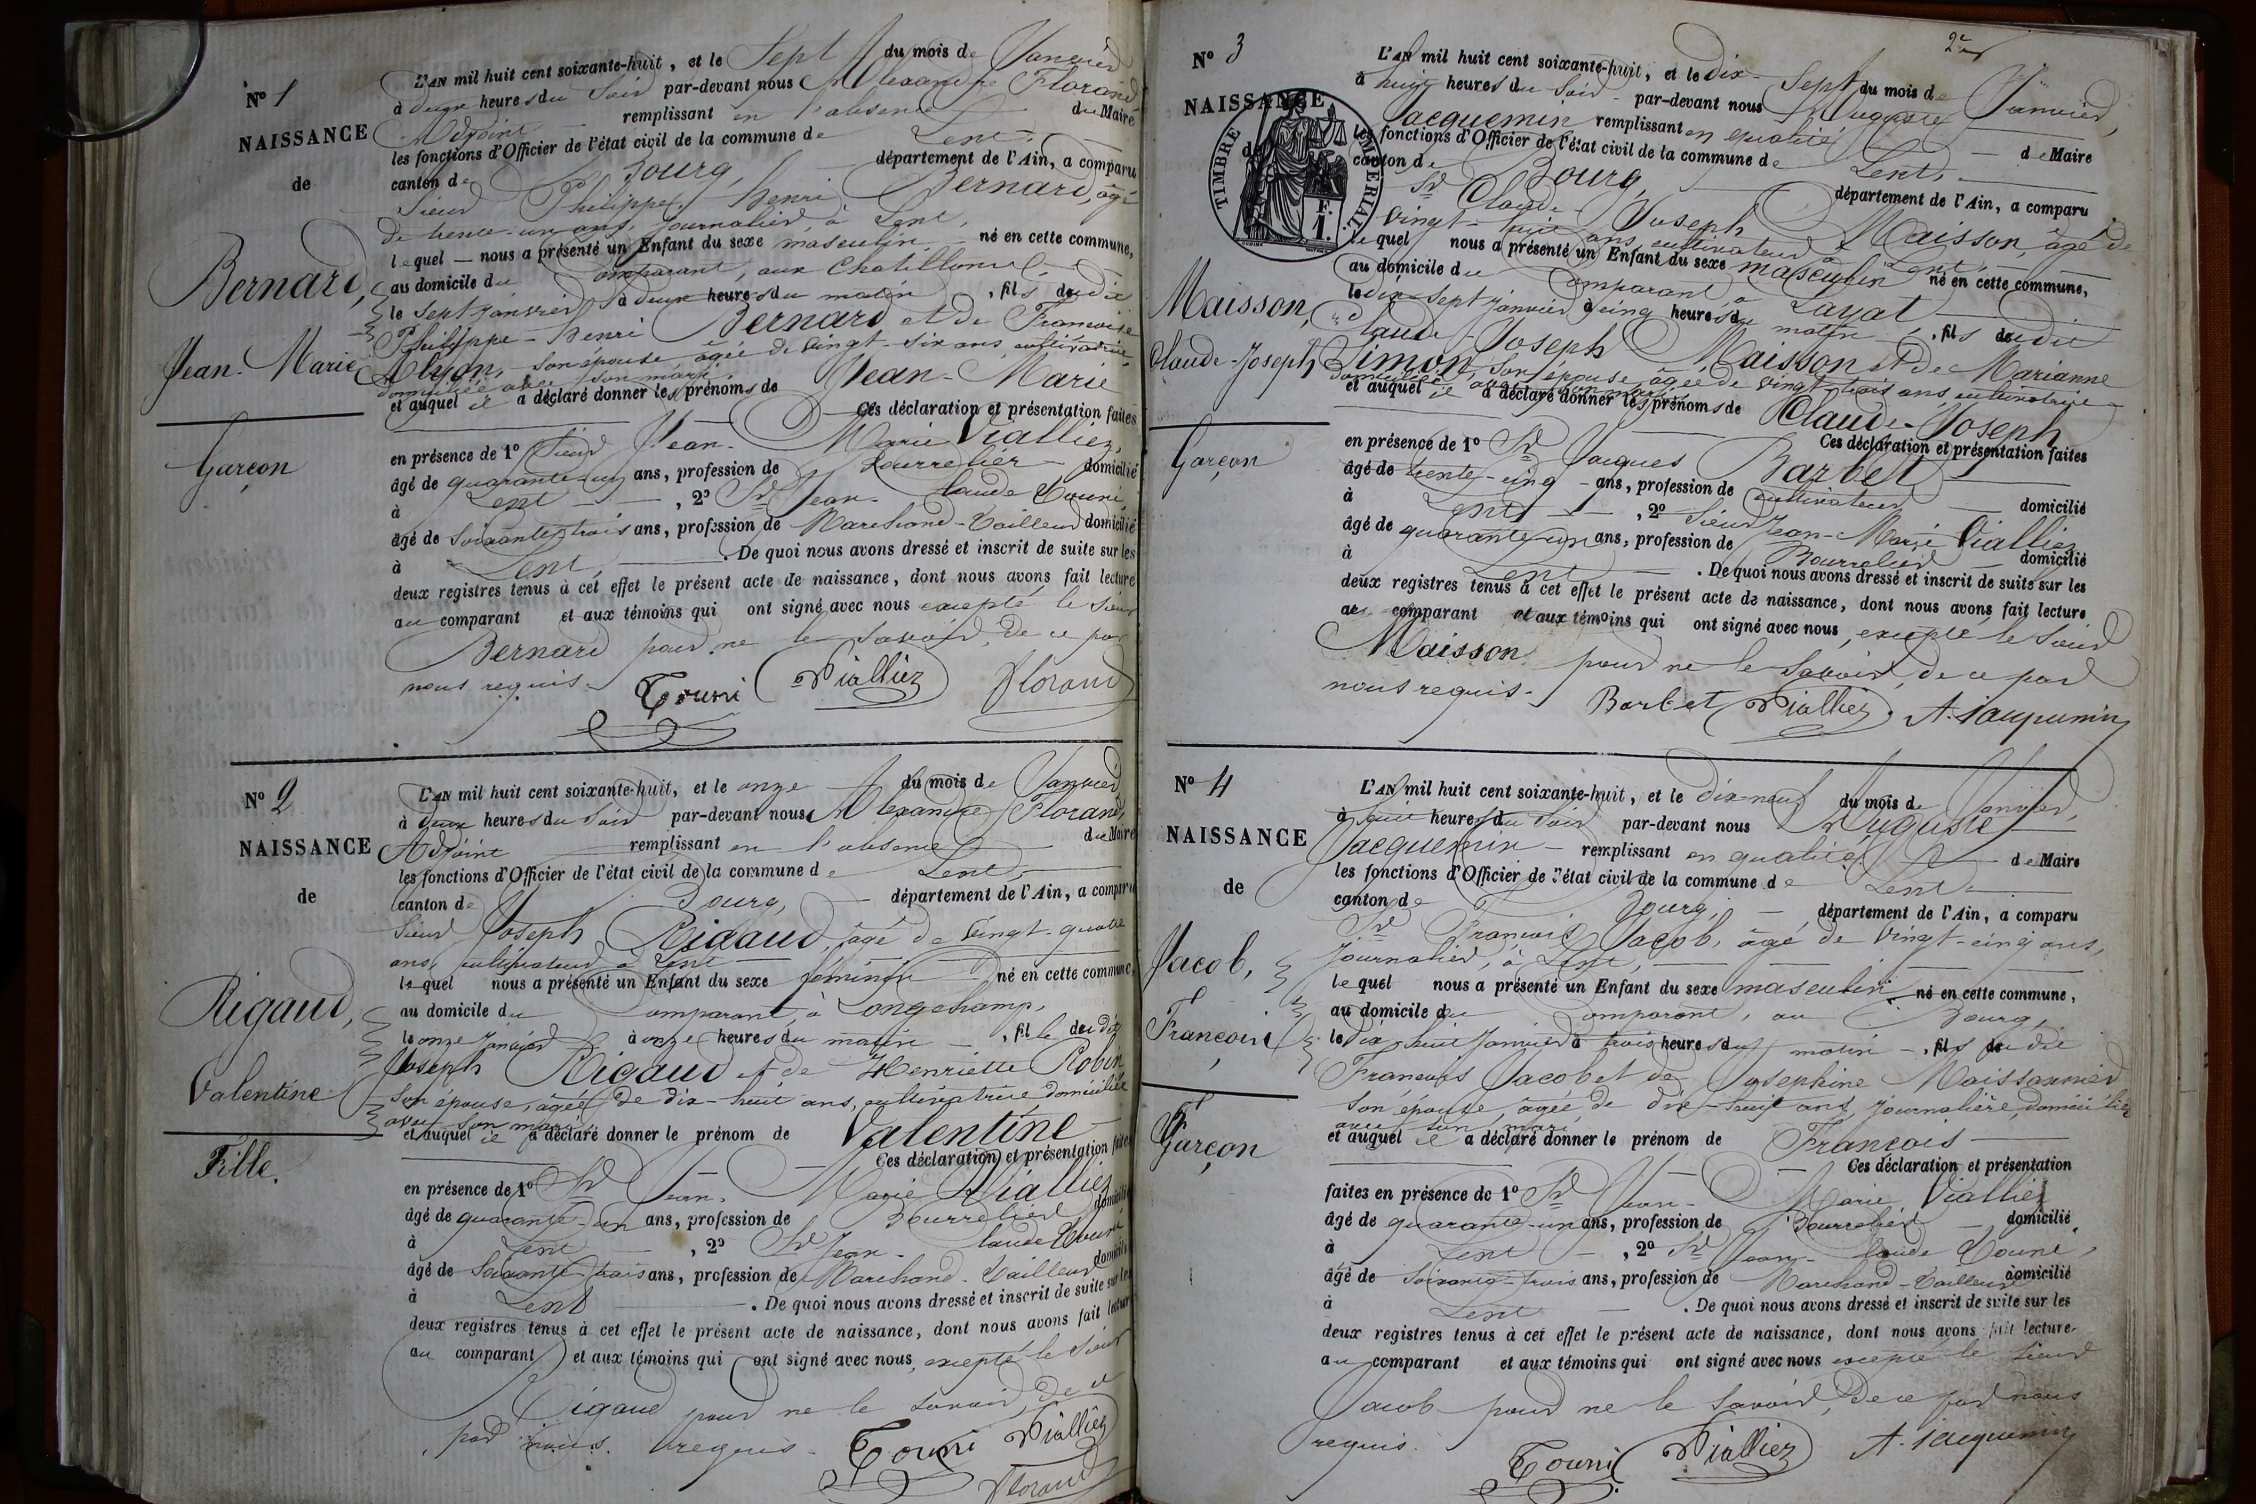 N° 1
NAISSANCE
de
Bernard,
Jean-Marie
Garçon
L'AN mil huit cent soixante-huit, et le Sept du mois de Janvier
à deux heures du Soir par-devant nous Alexandre Florand
Adjoint remplissant en l'absence du Maire
les fonctions d'Officier de l'état civil de la commune de Lent,
canton de Bourg, département de l'Ain, a comparu
Sieur Philippe-Henri Bernard, âgé
de trente-un ans, journalier, à Lent,
lequel nous a présenté un Enfant du sexe masculin né en cette commune,
au domicile du Comparant, aux Chatillons,
le Sept janvier à deux heures du matin, fils dudit
Philippe-Henri Bernard et de Françoise
son épouse âgée de vingt-six ans cultivatrice
domiciliée avec son mari,
et auquel il a déclaré donner les prénoms de Jean-Marie
Ces déclaration et présentation faites
en présence de 1° Sieur Jean-Marie Vialliez,
âgé de quarante-un ans, profession de Bourrelier domicilié
à Lent, 2° Sr Jean-Claude Touni,
âgé de Soixante-trois ans, profession de Marchand-Tailleur domicilié
à Lent, . De quoi nous avons dressé et inscrit de suite sur les
deux registres tenus à cet effet le présent acte de naissance, dont nous avons fait lecture
au comparant et aux témoins qui ont signé avec nous excepté le Sieur
Bernard pour ne le Savoir, de ce par
nous requis.
Touni Vialliez Florand
N° 2
NAISSANCE
de
Rigaud,
Valentine
Fille.
L'AN mil huit cent soixante-huit, et le onze du mois de Janvier
à deux heures du Soir par-devant nous Alexandre Florand,
Adjoint remplissant en l'absence du Maire
les fonctions d'Officier de l'état civil de la commune de Lent,
canton de Bourg, département de l'Ain, a comparu
Sieur Joseph Rigaud, âgé de vingt-quatre
ans, cultivateur à Lent
lequel nous a présenté un Enfant du sexe féminin né en cette commune,
au domicile du Comparant, à Longchamp,
le onze Janvier à onze heures du matin, fille dudit
Joseph Rigaud et de Henriette Robin
Son épouse, âgée de dix-huit ans, cultivatrice domiciliée
avec son mari
et auquel il a déclaré donner le prénom de Valentine
Ces déclaration et présentation faites
en présence de 1° Sr Jean-Marie Vialliez
âgé de quarante-un ans, profession de Bourrelier domicilié
à Lent, 2° Sr Jean-Claude Touni
âgé de Soixante-trois ans, profession de Marchand-Tailleur domicilié
à Lent . De quoi nous avons dressé et inscrit de suite sur les
deux registres tenus à cet effet le présent acte de naissance, dont nous avons fait lecture
au comparant et aux témoins qui ont signé avec nous, excepté le Sieur
Rigaud pour ne le savoir, de ce
par nous requis.
Touni Vialliez
Florand
2e
N° 3
NAISSANCE
de
TIMBRE IMPERIAL.
F.
1.
Maisson,
Claude-Joseph
Garçon
L'AN mil huit cent soixante-huit, et le dix-Sept du mois de Janvier,
à huit heures du Soir par-devant nous Auguste
Jacquemin remplissant en qualité de Maire
les fonctions d'Officier de l'état civil de la commune de Lent,
canton de Bourg, département de l'Ain, a comparu
Sr Claude-Joseph Maisson, âgé de
vingt-huit ans cultivateur à Lent,
lequel nous a présenté un Enfant du sexe masculin né en cette commune,
au domicile du Comparant, à Layat
le dix-Sept janvier à cinq heures du matin, fils dudit
Claude-Joseph Maisson et de Marianne
Simon, Son épouse âgée de vingt-trois ans, cultivatrice
domiciliée avec son mari
et auquel il a déclaré donner les prénoms de Claude-Joseph
Ces déclaration et présentation faites
en présence de 1° Sr Jacques Barbet
âgé de trente-cinq ans, profession de cultivateur domicilié
à Lent, 2° Sieur Jean-Marie Vialliez
âgé de quarante-un ans, profession de Bourrelier domicilié
à Lent . De quoi nous avons dressé et inscrit de suite sur les
deux registres tenus à cet effet le présent acte de naissance, dont nous avons fait lecture
au comparant et aux témoins qui ont signé avec nous, excepté le Sieur
Maisson pour ne le Savoir, de ce par
nous requis.
Barbet Vialliez A. Jacquemin
N° 4
NAISSANCE
de
Jacob,
François
Garçon
L'AN mil huit cent soixante-huit, et le dix-neuf du mois de Janvier,
à huit heures du Soir par-devant nous Auguste
Jacquemin remplissant en qualité de Maire
les fonctions d'Officier de l'état civil de la commune de Lent
canton de Bourg, département de l'Ain, a comparu
Sr François Jacob, âgé de vingt-cinq ans,
journalier, à Lent,
lequel nous a présenté un Enfant du sexe masculin né en cette commune,
au domicile du Comparant, au Bourg,
le dix-huit Janvier à trois heures du matin, fils dudit
François Jacob et de Josephine Maissonnier
Son épouse, âgée de dix-huit ans, journalière, domiciliée
avec son mari
et auquel il a déclaré donner le prénom de François
Ces déclaration et présentation
faites en présence de 1° Sr Jean-Marie Vialliez
âgé de quarante-un ans, profession de Bourrelier domicilié
à Lent, 2° Sr Jean-Claude Touni,
âgé de soixante-trois ans, profession de Marchand-Tailleur domicilié
à Lent . De quoi nous avons dressé et inscrit de suite sur les
deux registres tenus à cet effet le présent acte de naissance, dont nous avons fait lecture
au comparant et aux témoins qui ont signé avec nous excepté le Sieur
Jacob pour ne le Savoir, de ce par nous
requis.
Touni Vialliez A. Jacquemin